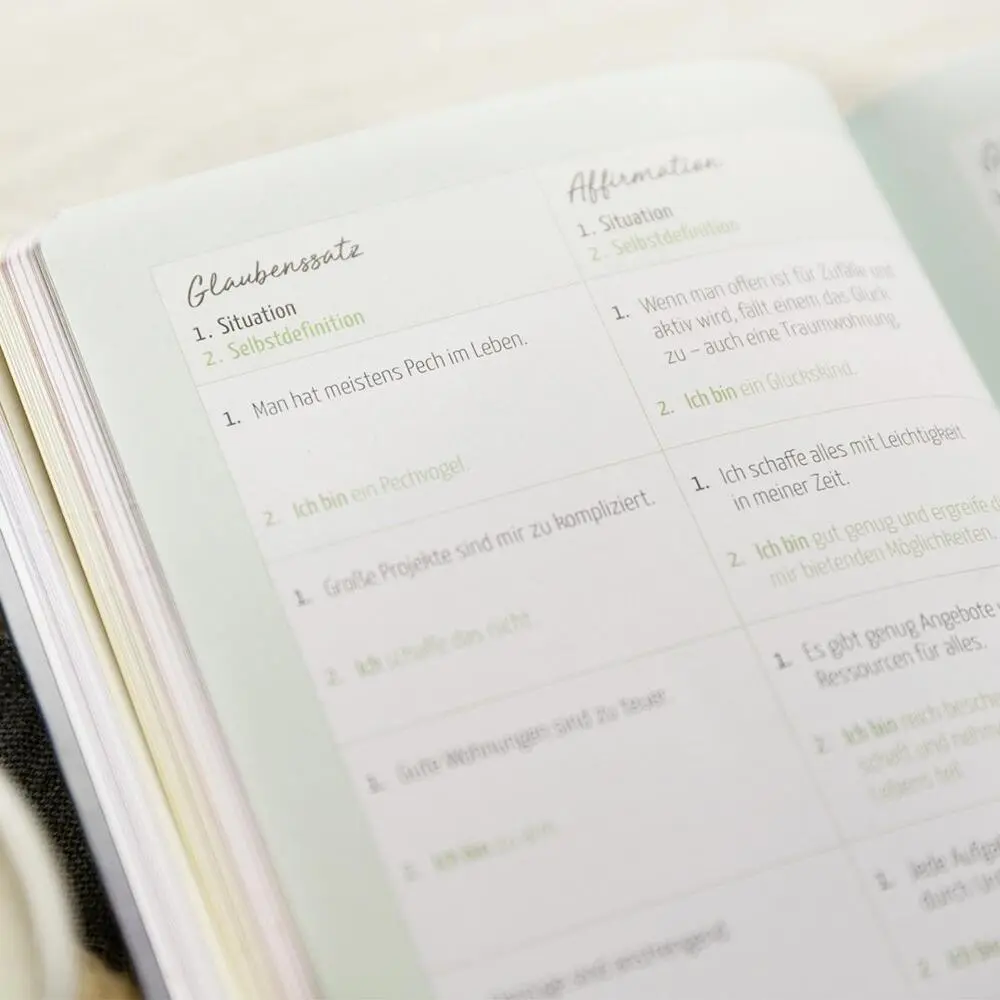 Glaubenssatz
1. Situation
2. Selbstdefinition
1. Man hat meistens Pech im Leben.
2. Ich bin ein Pechvogel.
1. Große Projekte sind mir zu kompliziert.
2. Ich schaffe das nicht.
1. Gute Wohnungen sind zu teuer.
2. Ich bin
sind anstrengend.
Affirmation
1. Situation
2. Selbstdefinition
1. Wenn man offen ist für Zufälle und
aktiv wird, fällt einem das Glück
zu – auch eine Traumwohnung.
2. Ich bin ein Glückskind.
1. Ich schaffe alles mit Leichtigkeit
in meiner Zeit.
2. Ich bin gut genug und ergreife d
mir bietenden Möglichkeiten.
1. Es gibt genug Angebote
Ressourcen für alles.
2. Ich bin reich
und
Lebens teil.
1. Jede
durch
2. Ich bin